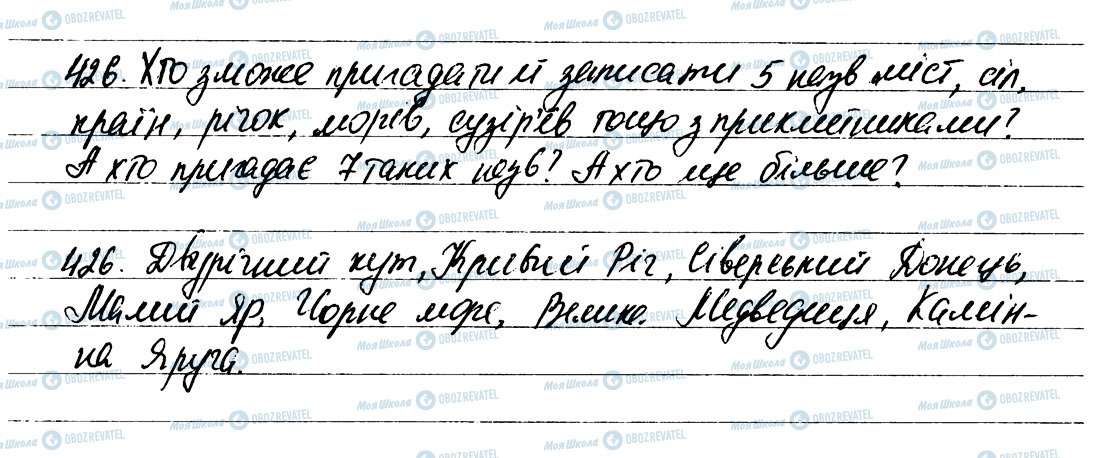 426. Хто зможе пригадати й записати 5 назв міст, сіл,
країн, річок, морів, сузір'їв тощо з прикметниками?
А хто пригадає 7 таких назв? А хто ще більше?
426. Дворічний кут, Кривий Ріг, Сіверський Донець,
Малий Яр, Чорне море, Велика Медведиця, Камін-
на Яруга.